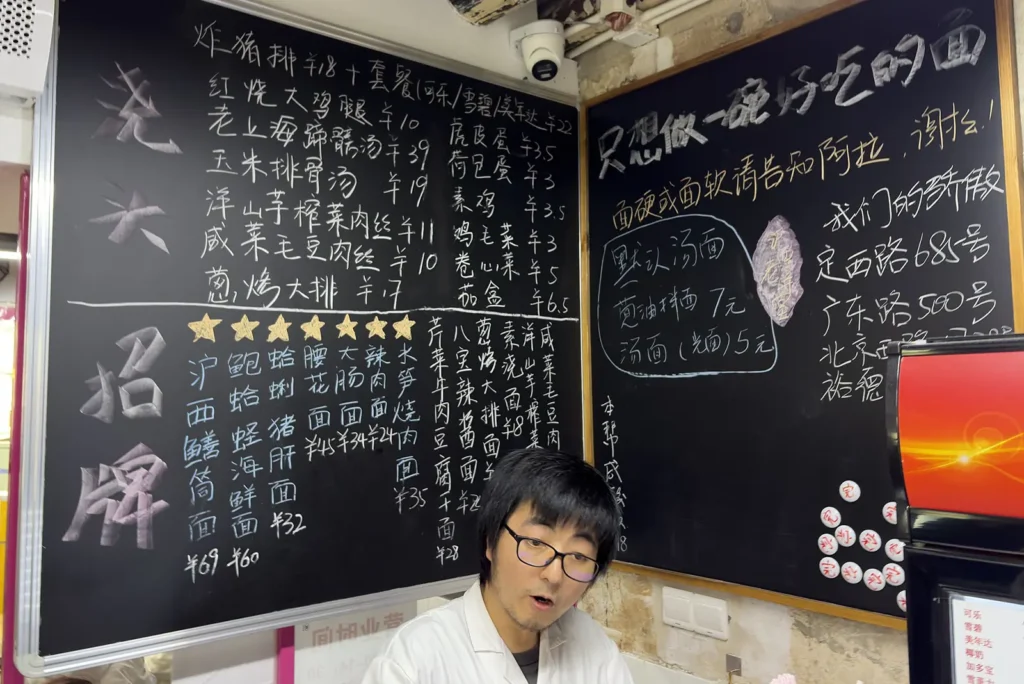 浇头
炸猪排 ¥18 + 套餐(可乐/雪碧/美年达 ¥22
红烧大鸡腿 ¥10
老上海蹄髈汤 ¥39
玉米排骨汤 ¥19
洋山芋榨菜肉丝 ¥11
咸菜毛豆肉丝 ¥10
葱烤大排 ¥17
虎皮蛋 ¥3.5
荷包蛋 ¥3
素鸡 ¥3.5
鸡毛菜 ¥3
卷心菜 ¥5
茄盒 ¥6.5
招牌
沪西鳝筒面 ¥69
鲍蛤蛏海鲜面 ¥60
蛤蜊猪肝面 ¥32
腰花面 ¥45
大肠面 ¥34
辣肉面 ¥24
水笋烧肉面 ¥35
芹菜牛肉豆腐干面 ¥28
八宝辣酱面
葱烤大排面
素浇面 ¥18
洋山芋榨菜
咸菜毛豆肉
只想做一碗好吃的面
面硬或面软请告知阿拉,谢谢!
默认汤面
葱油拌面 7元
汤面(光面)5元
我们的
定西路685号
广东路500号
北京西路
裕德
本帮
可乐
雪碧
美年达
椰奶
加多宝